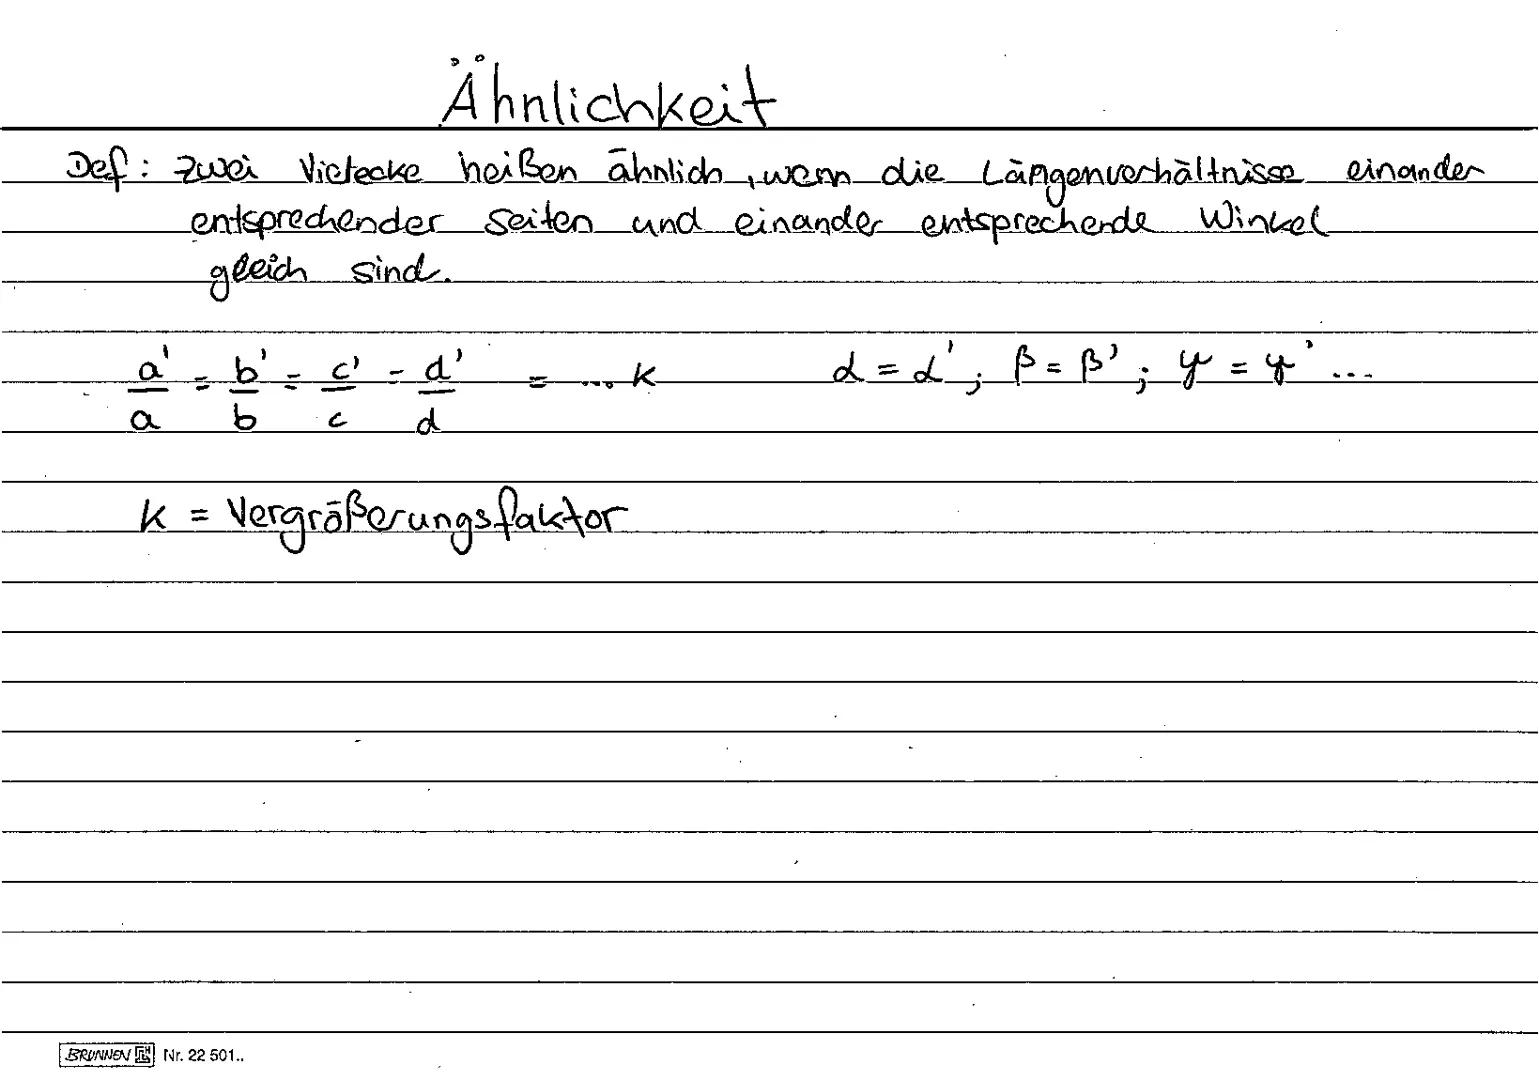 Ähnlichkeit
Def: Zwei Vielecke heißen ähnlich, wenn die Längenverhältnisse einander
entsprechender Seiten und einander entsprechende Winkel
gleich sind.
a'/a = b'/b = c'/c = d'/d = ... k α = α'; β = β'; γ = γ' ...
k = Vergrößerungsfaktor
BRUNNEN Nr. 22 501..